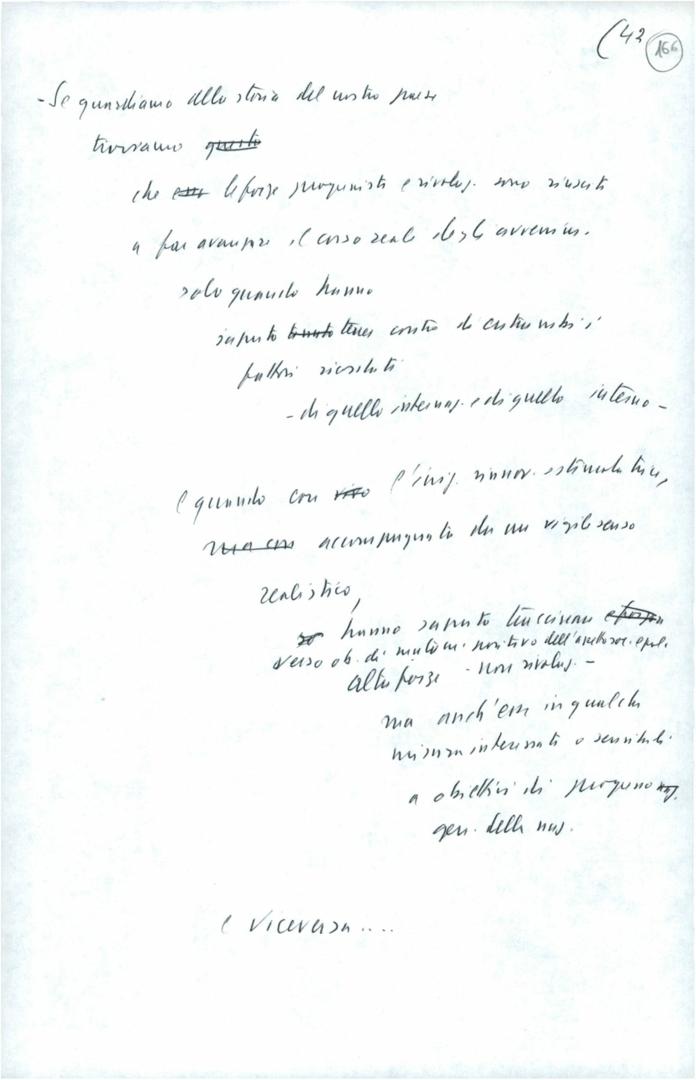 (42
166
- Se guardiamo alla storia del nostro paese
troviamo questo
che le forze progressiste e rivoluz. sono riuscite
a far avanzare il corso reale degli avvenim.
solo quando hanno
saputo tener conto di entrambi i
fattori ricordati
- di quello internaz. e di quello interno -
e quando con l'energ. rinnov. e stimolatrice,
ma con accompagnata da un vigile senso
realistico,
hanno saputo trascinare
verso ob. di mutam. positivo dell'assetto soc. e pol.
altre forze - non rivoluz. -
ma anch'esse in qualche
misura interessate o sensibili
a obiettivi di progresso
gen. della naz.
e viceversa....